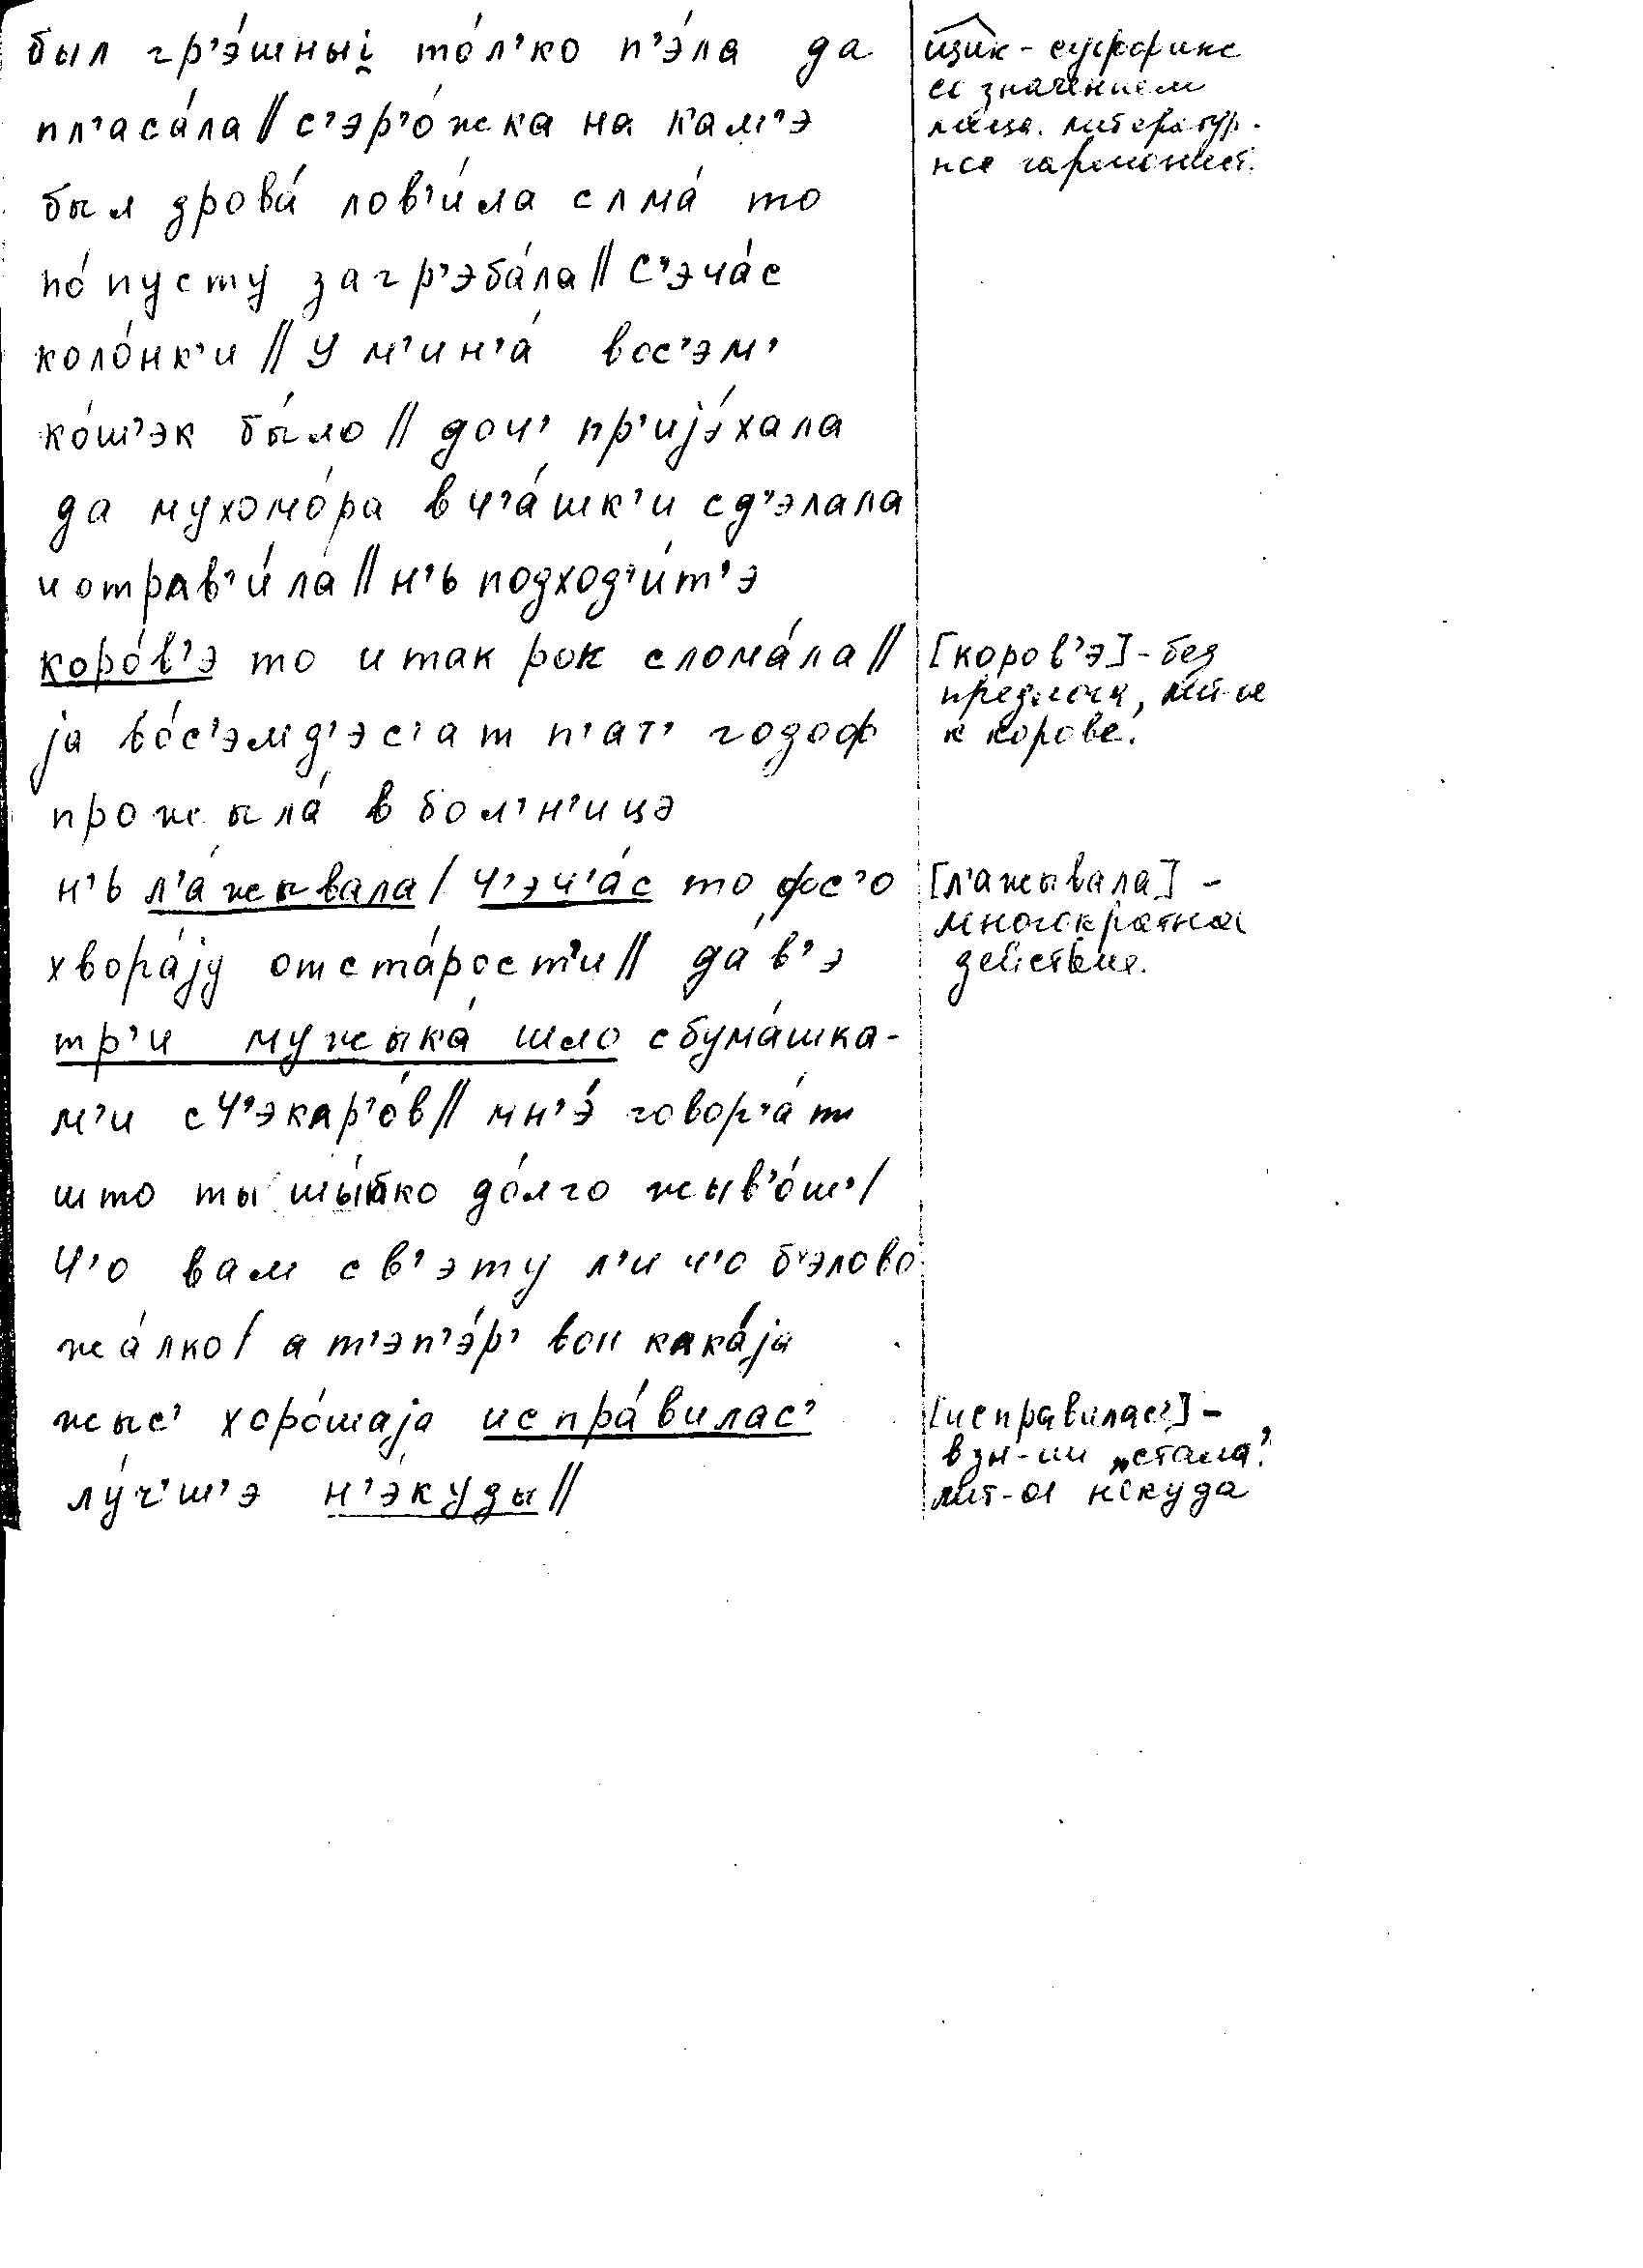 был гр’э́шныi̯ то́л’ко п’э́ла да
пл’аса́ла // с’эр’о́жка на кам’э
был дрова́ лов’и́ла слма́ то
по́пусту загр’эба́ла // С’эча́с
коло́нк’и // У м’ин’а́ вос’эм’
ко́ш’эк бы́ло // доч’ пр’иjэ́хала
да мухомо́ра в ч’а́шк’и сд’элала
и отрав’и́ла // н’ь подход’и́т’э
коро́в’э то и так рок слома́ла //
jа во́с’эмд’эс’ат п’ат’ годоф
прожыла́ в бол’н’ицэ
н’ь л’а́жывала / ч’эч’а́с то фс’о
хвора́jу отста́рост’и // да́в’э
тр’и мужыка́ шло сбума́шка-
м’и сЧ’экар’о́в // мн’э́ говор’а́т
што ты шы́пко до́лго жыв’о́ш’ /
Ч’о вам св’эту л’и ч’о б’элово
жа́лко / а т’эп’э́р’ вон кака́jа
жыс’ хоро́шаjа испра́вилас’
лу́ч’ш’э н’э́куды //
щик - суффикс
со значением
лица. литератур-
ное гармонист.
[коров’э] - без
предлога, лит-ое
к корове.
[л’ажывала] -
многократное
действие.
[исправилас’] -
в зн-ии „стала”.
лит-ое некуда